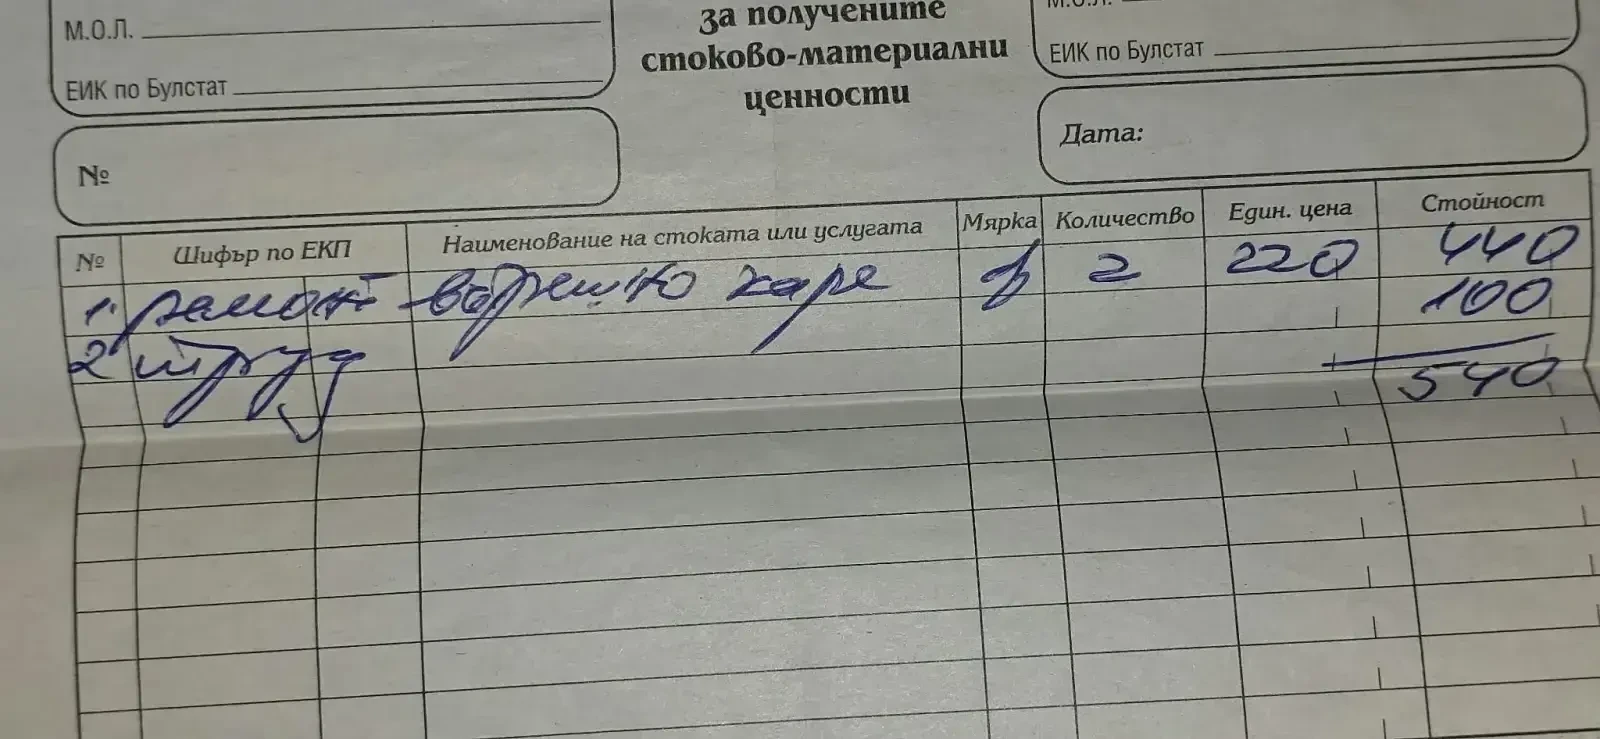 М.О.Л.
ЕИК по Булстат
за получените
стоково-материални
ценности
М.О.Л.
ЕИК по Булстат
№
Дата:
№ Шифър по ЕКП Наименование на стоката или услугата Мярка Количество Един. цена Стойност
1. ремонт външно каре 2 220 440
2 труд 100
540